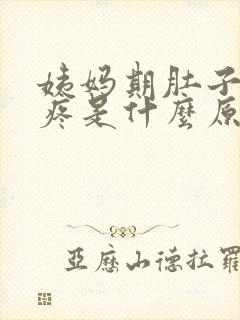 姨妈期肚子
疼是什麼原
亞歷山德拉羅